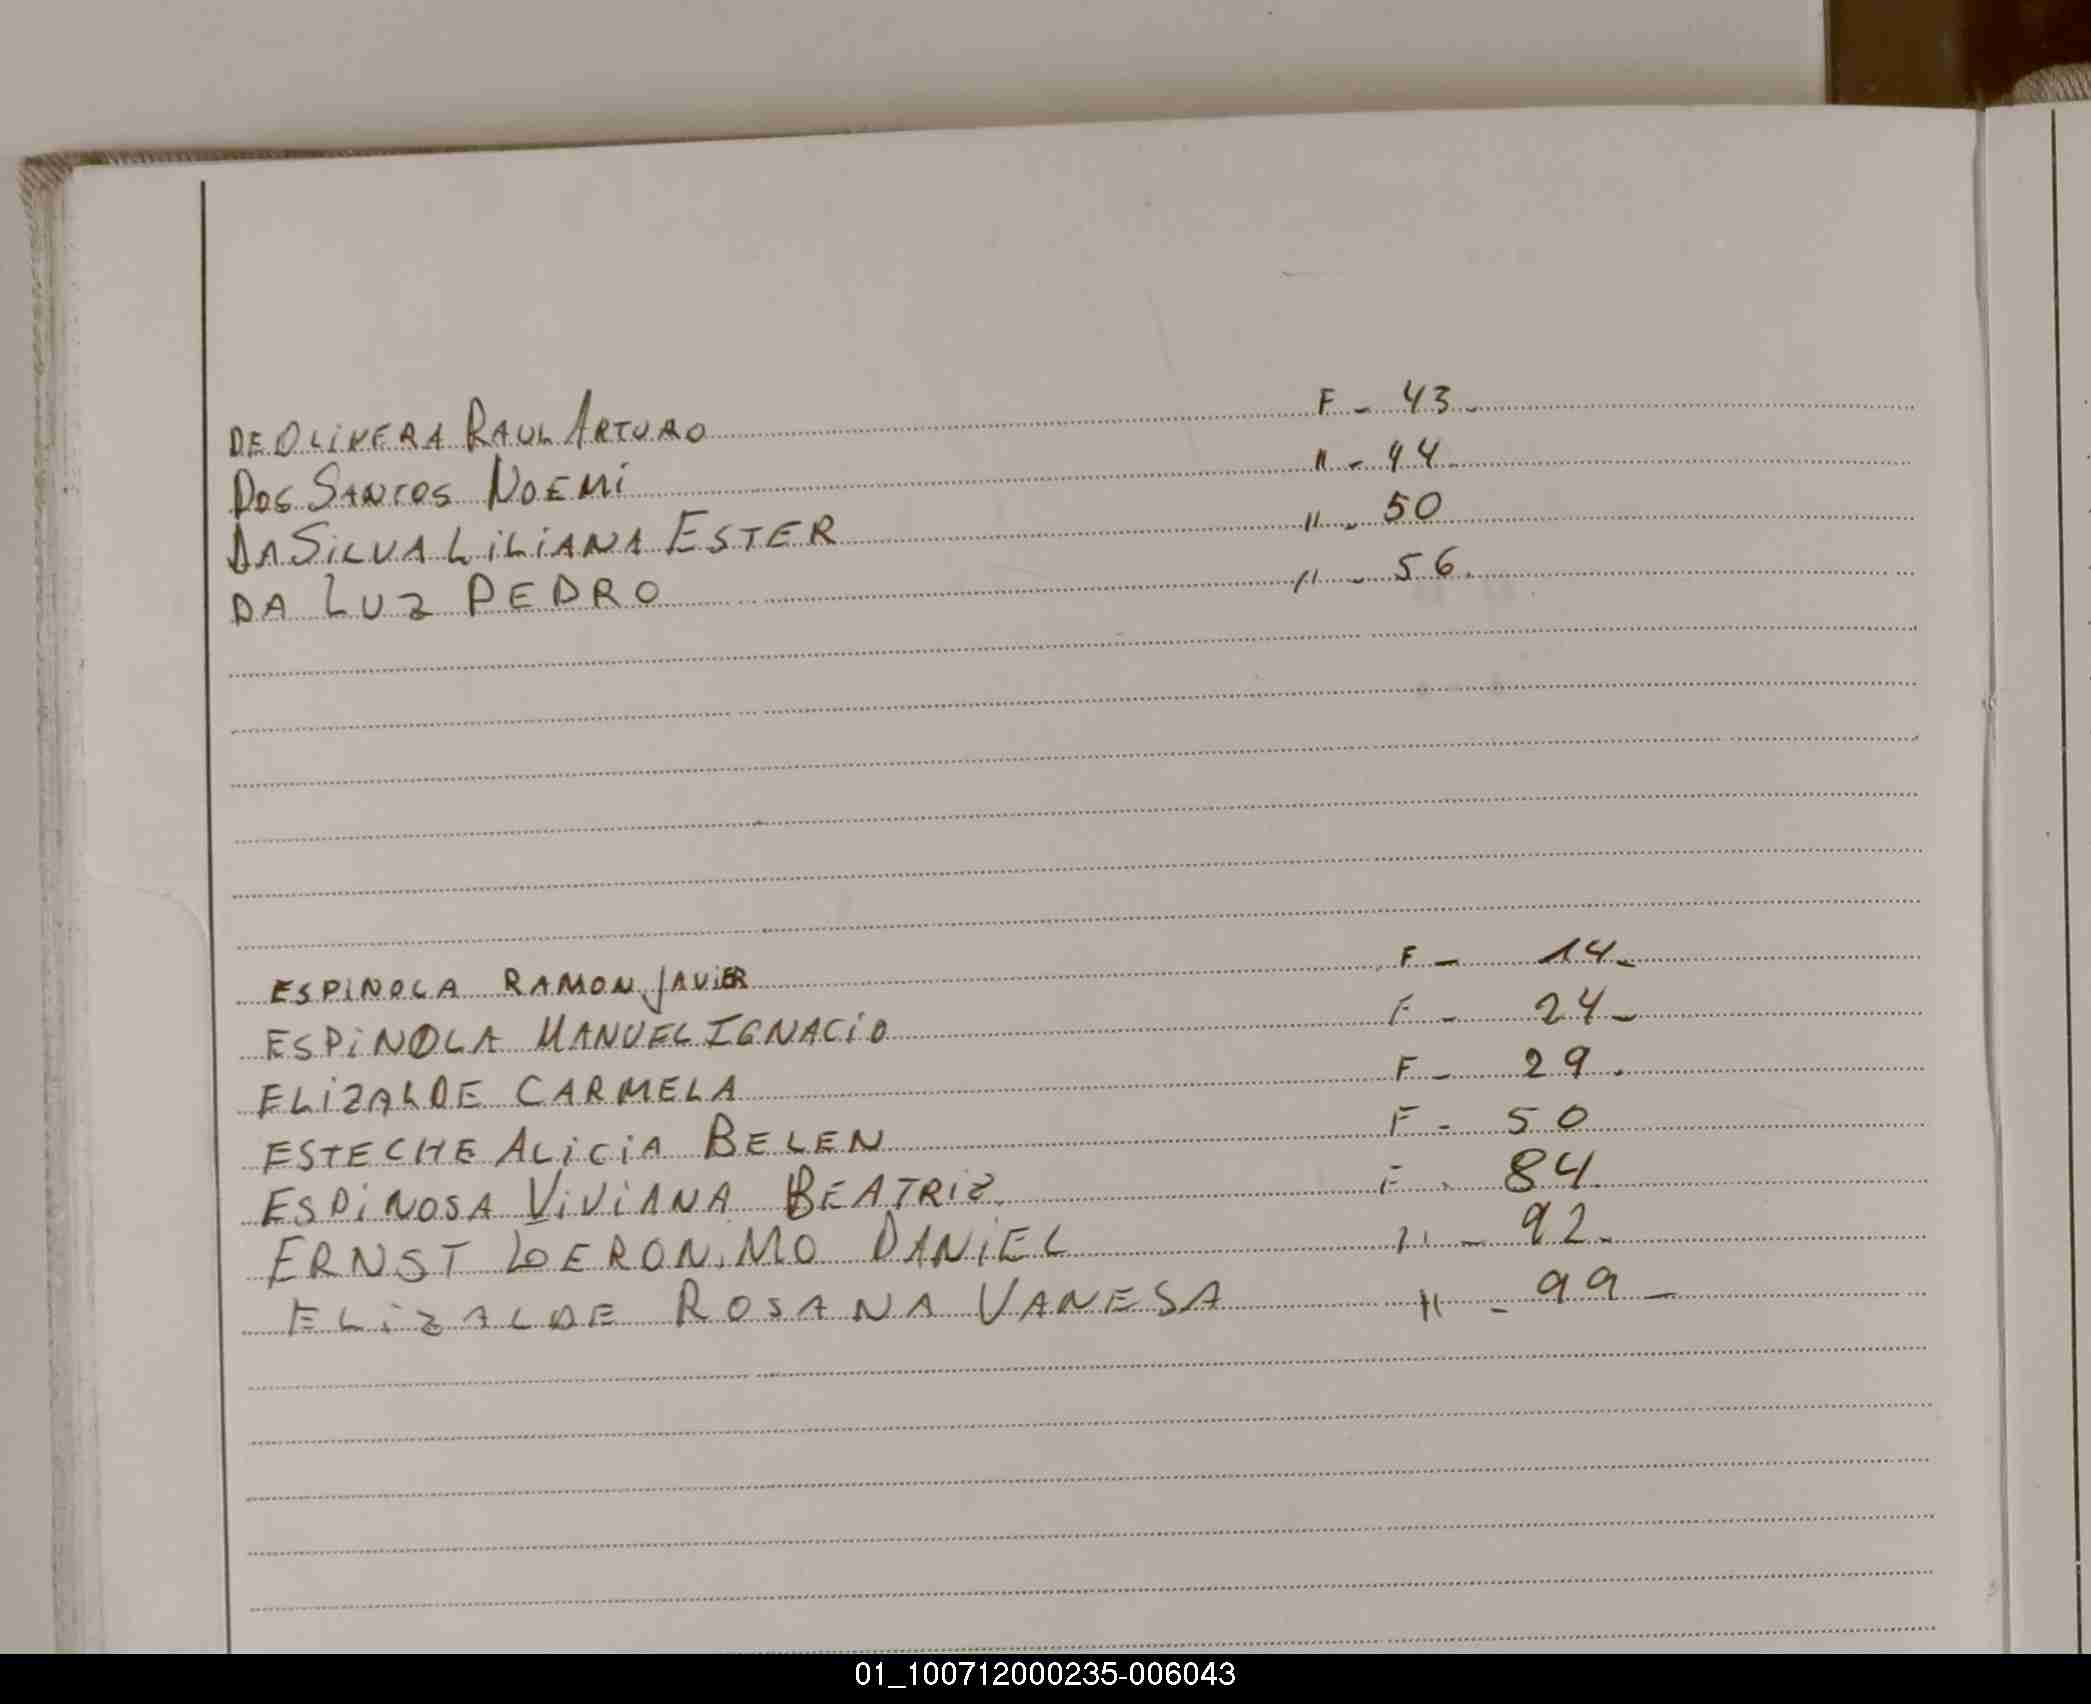 DE OLIVERA RAUL ARTURO F - 43 -
DOS SANTOS NOEMI " - 44 -
DA SILVA LILIANA ESTER " - 50
DA LUZ PEDRO " - 56.
ESPINOLA RAMON JAVIER F - 14 -
ESPINOLA MANUEL IGNACIO F - 24 -
ELIZALDE CARMELA F - 29 .
ESTECHE ALICIA BELEN F - 50
ESPINOSA VIVIANA BEATRIZ F - 84.
ERNST DANIEL " - 92.
ELIZALDE ROSANA VANESA " - 99 -
01_100712000235-006043